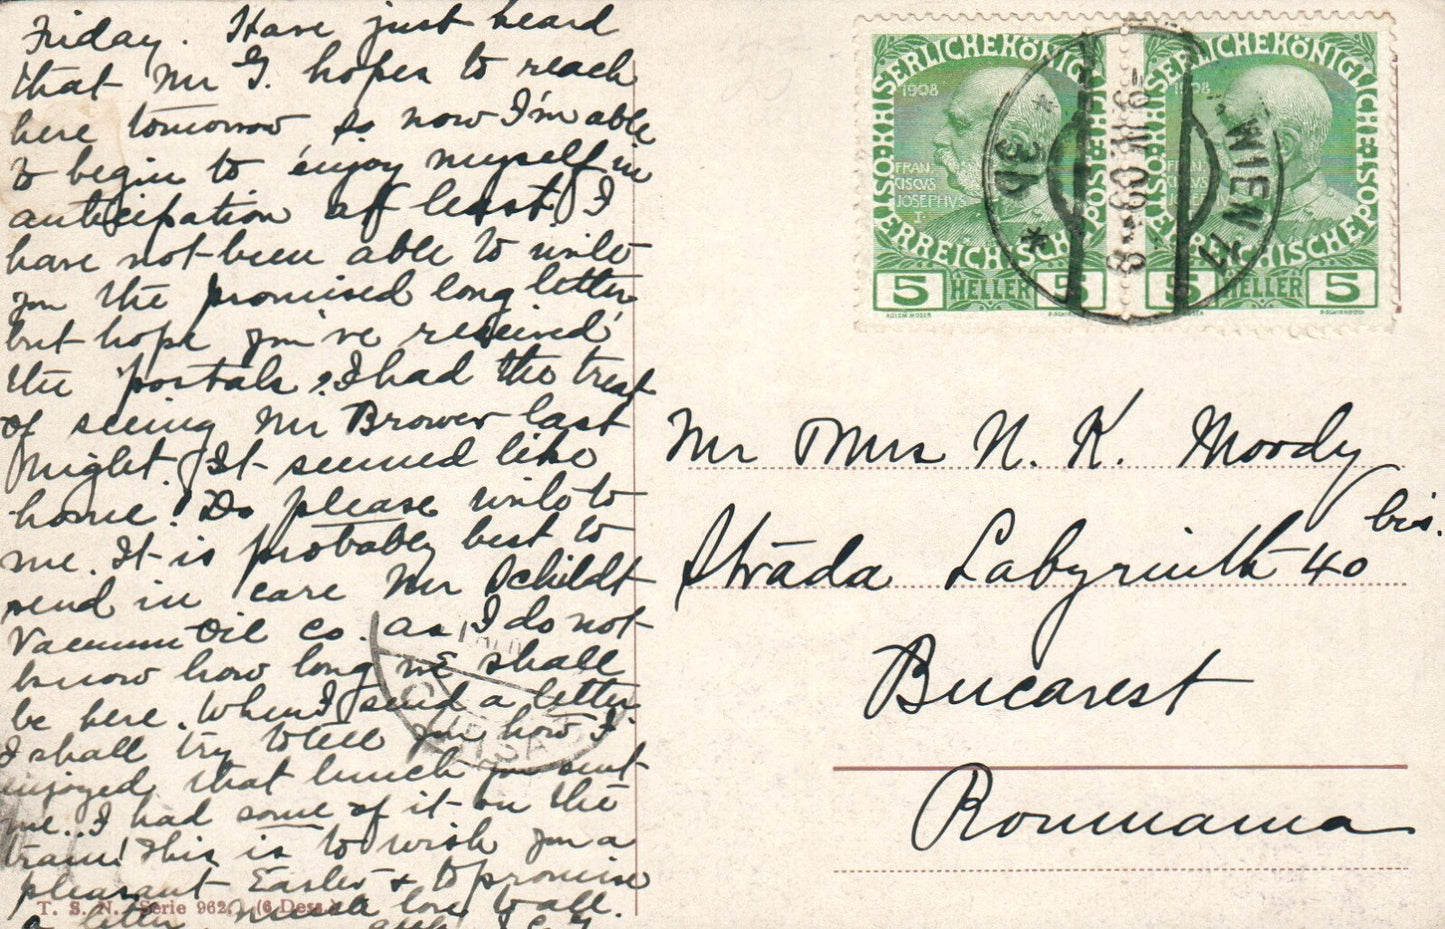 Friday. Have just heard
that Mr G. hopes to reach
here tomorrow so now I'm able
to begin to enjoy myself in
anticipation at least. I
have not been able to write
you the promised long letter
but hope you've received
the postals. I had the treat
of seeing Mr Brower last
night. It seemed like
home! Do please write to
me. It is probably best to
send in care Mr Schildt
Vacuum Oil Co. as I do not
know how long we shall
be here. When I send a letter
I shall try to tell you how I
enjoyed that lunch you sent
me.. I had some of it on the
train! This is to wish you a
pleasant Easter & to promise
a letter. love to all.
T. S. N. Serie 962. (6 Dess.)
KAISERLICHEKÖNIGLICHE ÖSTERREICHISCHE POST
1908
FRAN
CISCVS
JOSEPHVS
I.
5 HELLER 5
KAISERLICHEKÖNIGLICHE ÖSTERREICHISCHE POST
1908
5 HELLER 5
WIEN
* 3b *
Mr Mrs N. K. Moody
Strada Labyrinth 40 bis.
Bucarest
Roumania